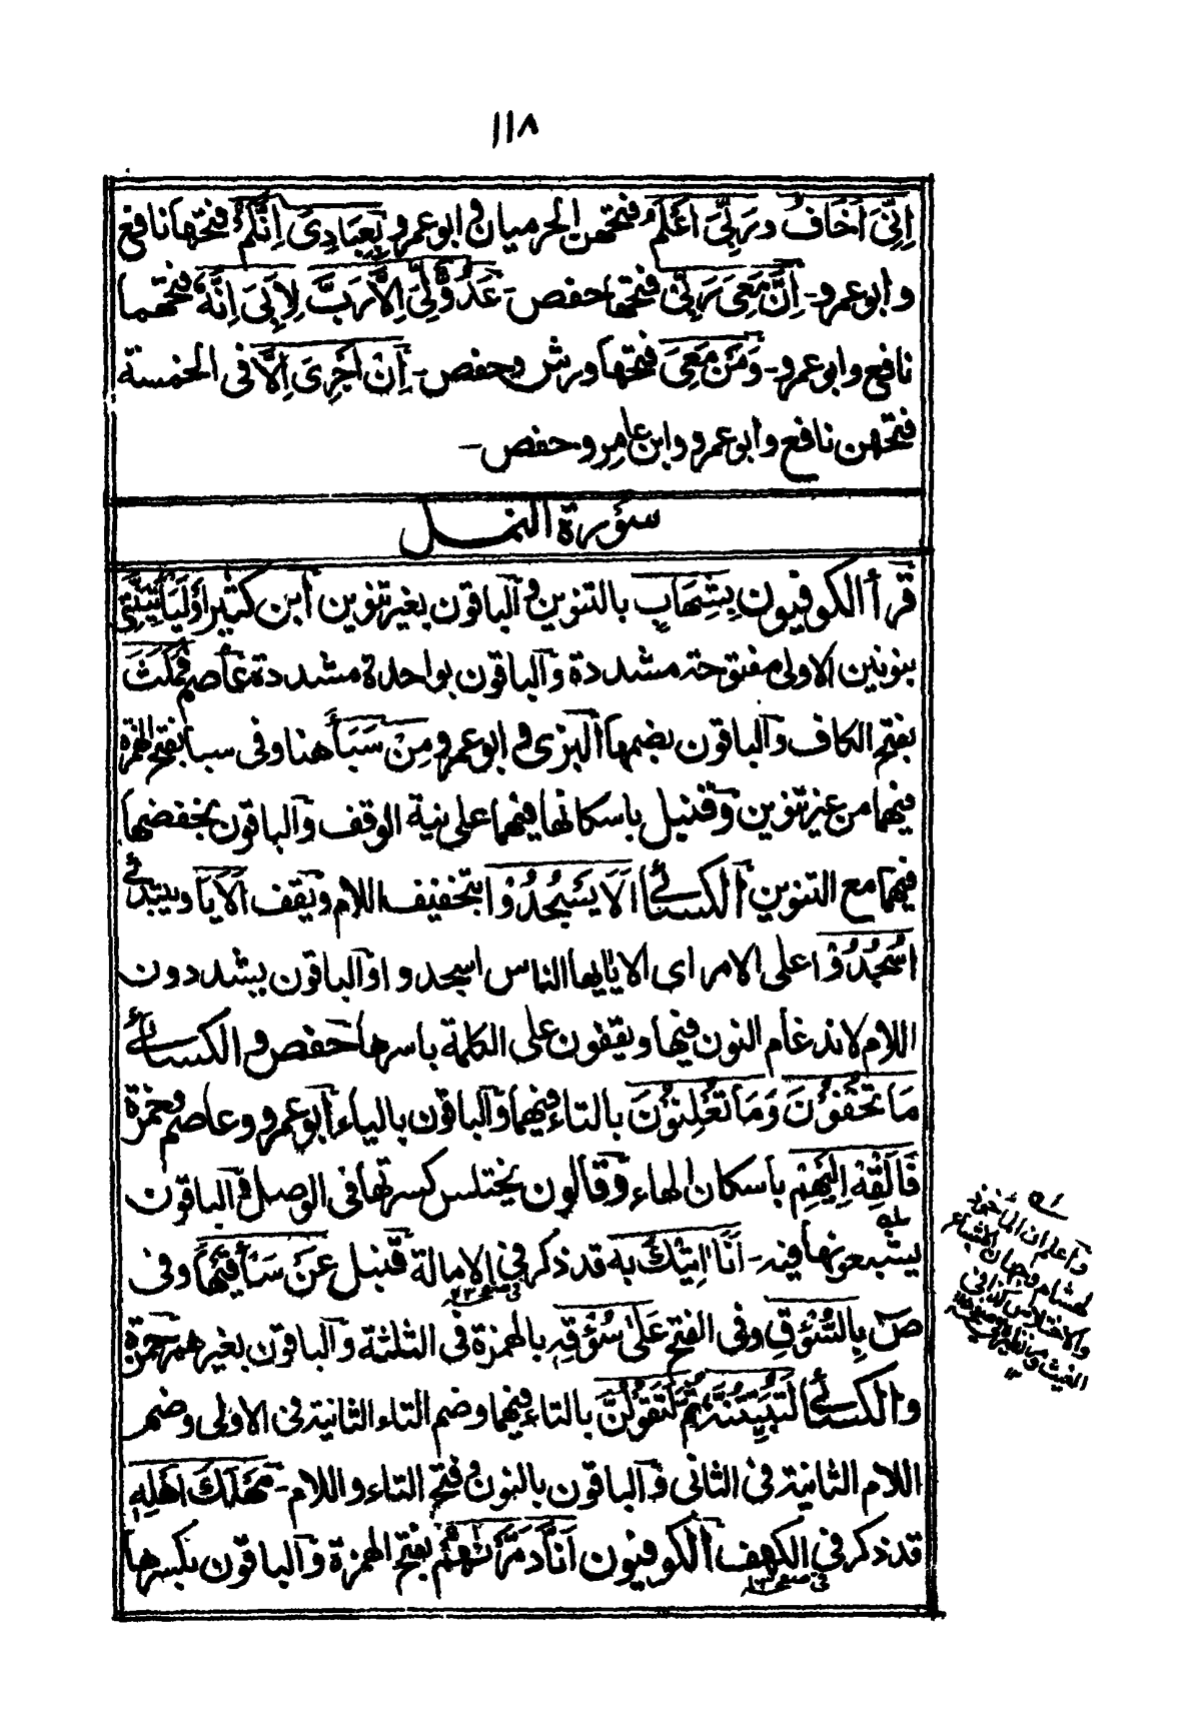 ١١٨
اِنِّىَ اَخَافُ و رَبِّىَ اَعْلَمُ فتحهن الحرميان و ابو عمرو بِعِبَادِىَ اِنَّكُمْ فتحها نافع
و ابو عمرو۔ اِنَّ مَعِىَ رَبِّىْ فتحها حفص۔ عَدُوٌّ لِّىَ اِلَّا رَبَّ لِاَبِىَ اِنَّهٗ فتحهما
نافع و ابو عمرو۔ وَمَنْ مَعِىَ فتحها ورش و حفص۔ اِنْ اَجْرِىَ اِلَّا فى الخمسة
فتحهن نافع و ابو عمرو و ابن عامر و حفص۔
سُوْرة النمل
قرأ الكوفيون بِشِهَابٍ بالتنوين و الباقون بغير تنوين ابن كثير اَوْ لَيَاْتِيَنَّنِىْ
بنونين الاولى مفتوحة مشددة و الباقون بواحدة مشددة عاصم فَمَكَثَ
بفتح الكاف و الباقون بضمها البزى و ابو عمرو مِنْ سَبَأَ هنا و فى سبا بفتح الهمزة
فيهما من غير تنوين و قنبل باسكانها فيهما على نية الوقف و الباقون بخفضها
فيهما مع التنوين الكسائى اَلَا يَسْجُدُوْا بتخفيف اللام و يقف اَلَا يَا و يبتدئ
اُسْجُدُوْا على الامر اى الا يا ايها الناس اسجدوا و الباقون يشددون
اللام لاندغام النون فيها و يقفون على الكلمة باسرها حفص و الكسائى
مَا تُخْفُوْنَ وَمَا تُعْلِنُوْنَ بالتاء فيهما و الباقون بالياء ابو عمرو و عاصم و حمزة
فَاَلْقِهْ اِلَيْهِمْ باسكان الهاء و قالون يختلس كسرتها فى الوصل و الباقون
يشبعونها فيه۔ اَنَا اٰتِيْكَ بِهٖ قد ذكر فى الامالة قنبل عَنْ سَأْقَيْهَا و فى
فى صفحه ٧٣
صٓ بِالسُّؤْقِ و فى الفتح عَلٰى سُؤْقِهٖ بالهمزة فى الثلثة و الباقون بغير همز حمزة
و الكسائى لَتُبَيِّتُنَّهٗ ثُمَّ لَتَقُوْلُنَّ بالتاء فيهما و ضم التاء الثانية فى الاولى و ضم
اللام الثانية فى الثانى و الباقون بالنون و فتح التاء و اللام۔ مَهْلَكَ اَهْلِهٖ
قد ذكر فى الكهف الكوفيون اَنَّا دَمَّرْنٰهُمْ بفتح الهمزة و الباقون بكسرها
و اعلم ان الماخوذ
لهشام وجهان الاشباع
و الاختلاس كذا فى
الغيث